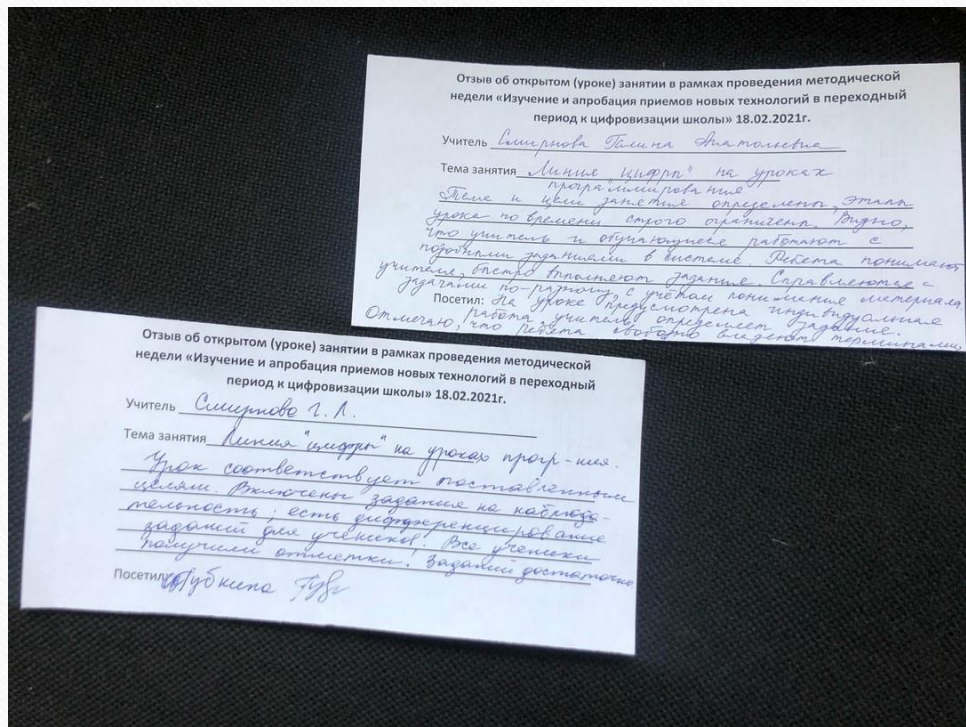 Отзыв об открытом (уроке) занятии в рамках проведения методической
недели «Изучение и апробация приемов новых технологий в переходный
период к цифровизации школы» 18.02.2021г.
Учитель Смирнова Галина Анатольевна
Тема занятия „Линия цифры" на уроках
программирования
Тема и цели занятия определены, этапы
урока по времени строго ограничены. Видно,
что учитель и обучающиеся работают с
подобными заданиями в системе. Ребята понимают
учителя, быстро выполняют задания. Справляются с
задачами по-разному, с учётом понимания материала.
Посетил: На уроке предусмотрена индивидуальная
работа, учитель определяет задание.
Отмечаю, что ребята свободно владеют терминами.
Отзыв об открытом (уроке) занятии в рамках проведения методической
недели «Изучение и апробация приемов новых технологий в переходный
период к цифровизации школы» 18.02.2021г.
Учитель Смирнова Г. А.
Тема занятия Линия "цифры" на уроках прогр-ния.
Урок соответствует поставленным
целям. Включены задания на наблюда-
тельность; есть дифференцирование
заданий для учеников! Все ученики
получили отметки! Заданий достаточно
Посетил: Губкина